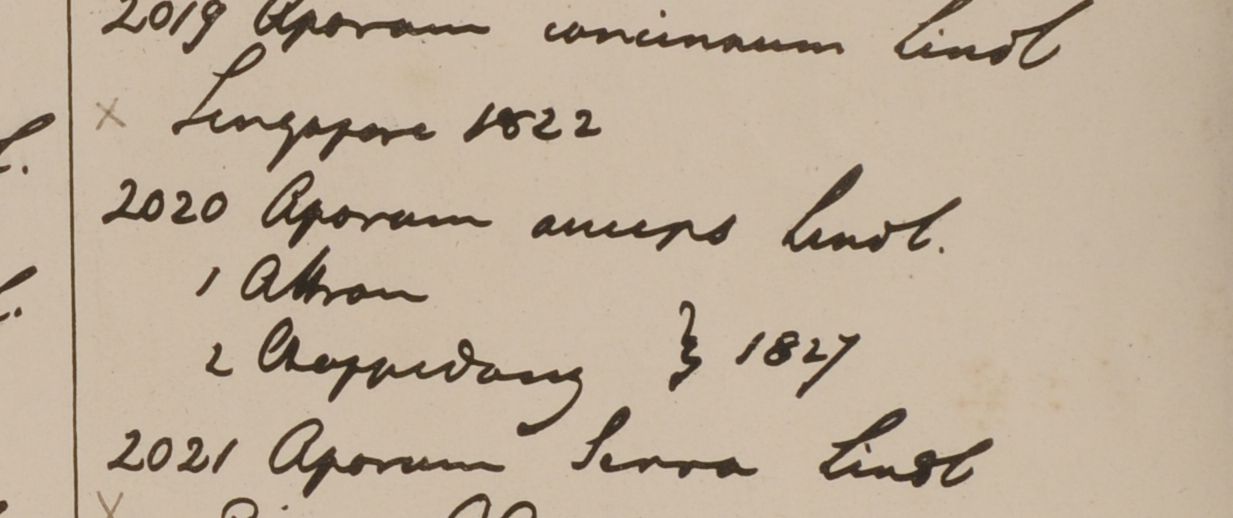 2019 Aporum concinnum Lindl
Singapore 1822
2020 Aporum anceps Lindl.
1 Attran
2 Chappedong } 1827
2021 Aporum Serra Lindl